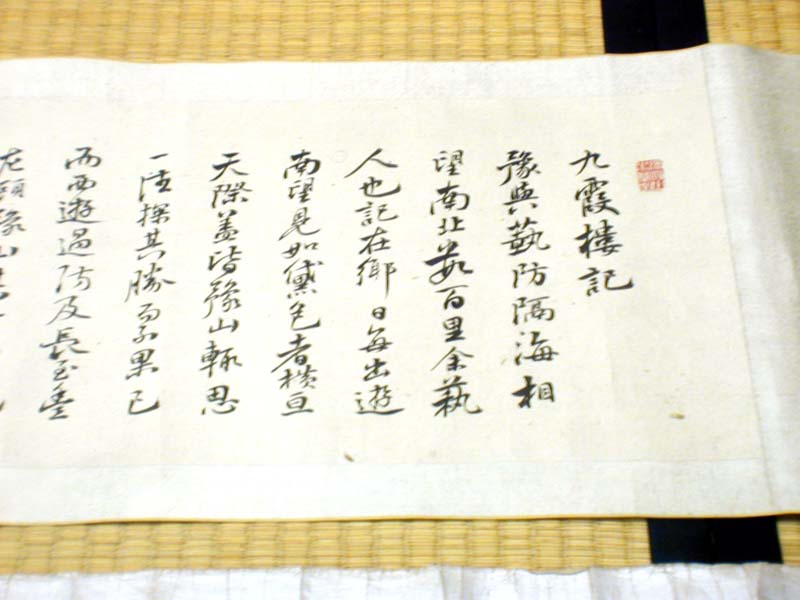 九霞樓記
豫與藝防隔海相
望南北数百里余藝
人也記在鄉日每出遊
南望見如黛色者横亘
天際蓋皆豫山輙思
一往探其勝而不果已
而西遊過防及長至豊
在頭豫山